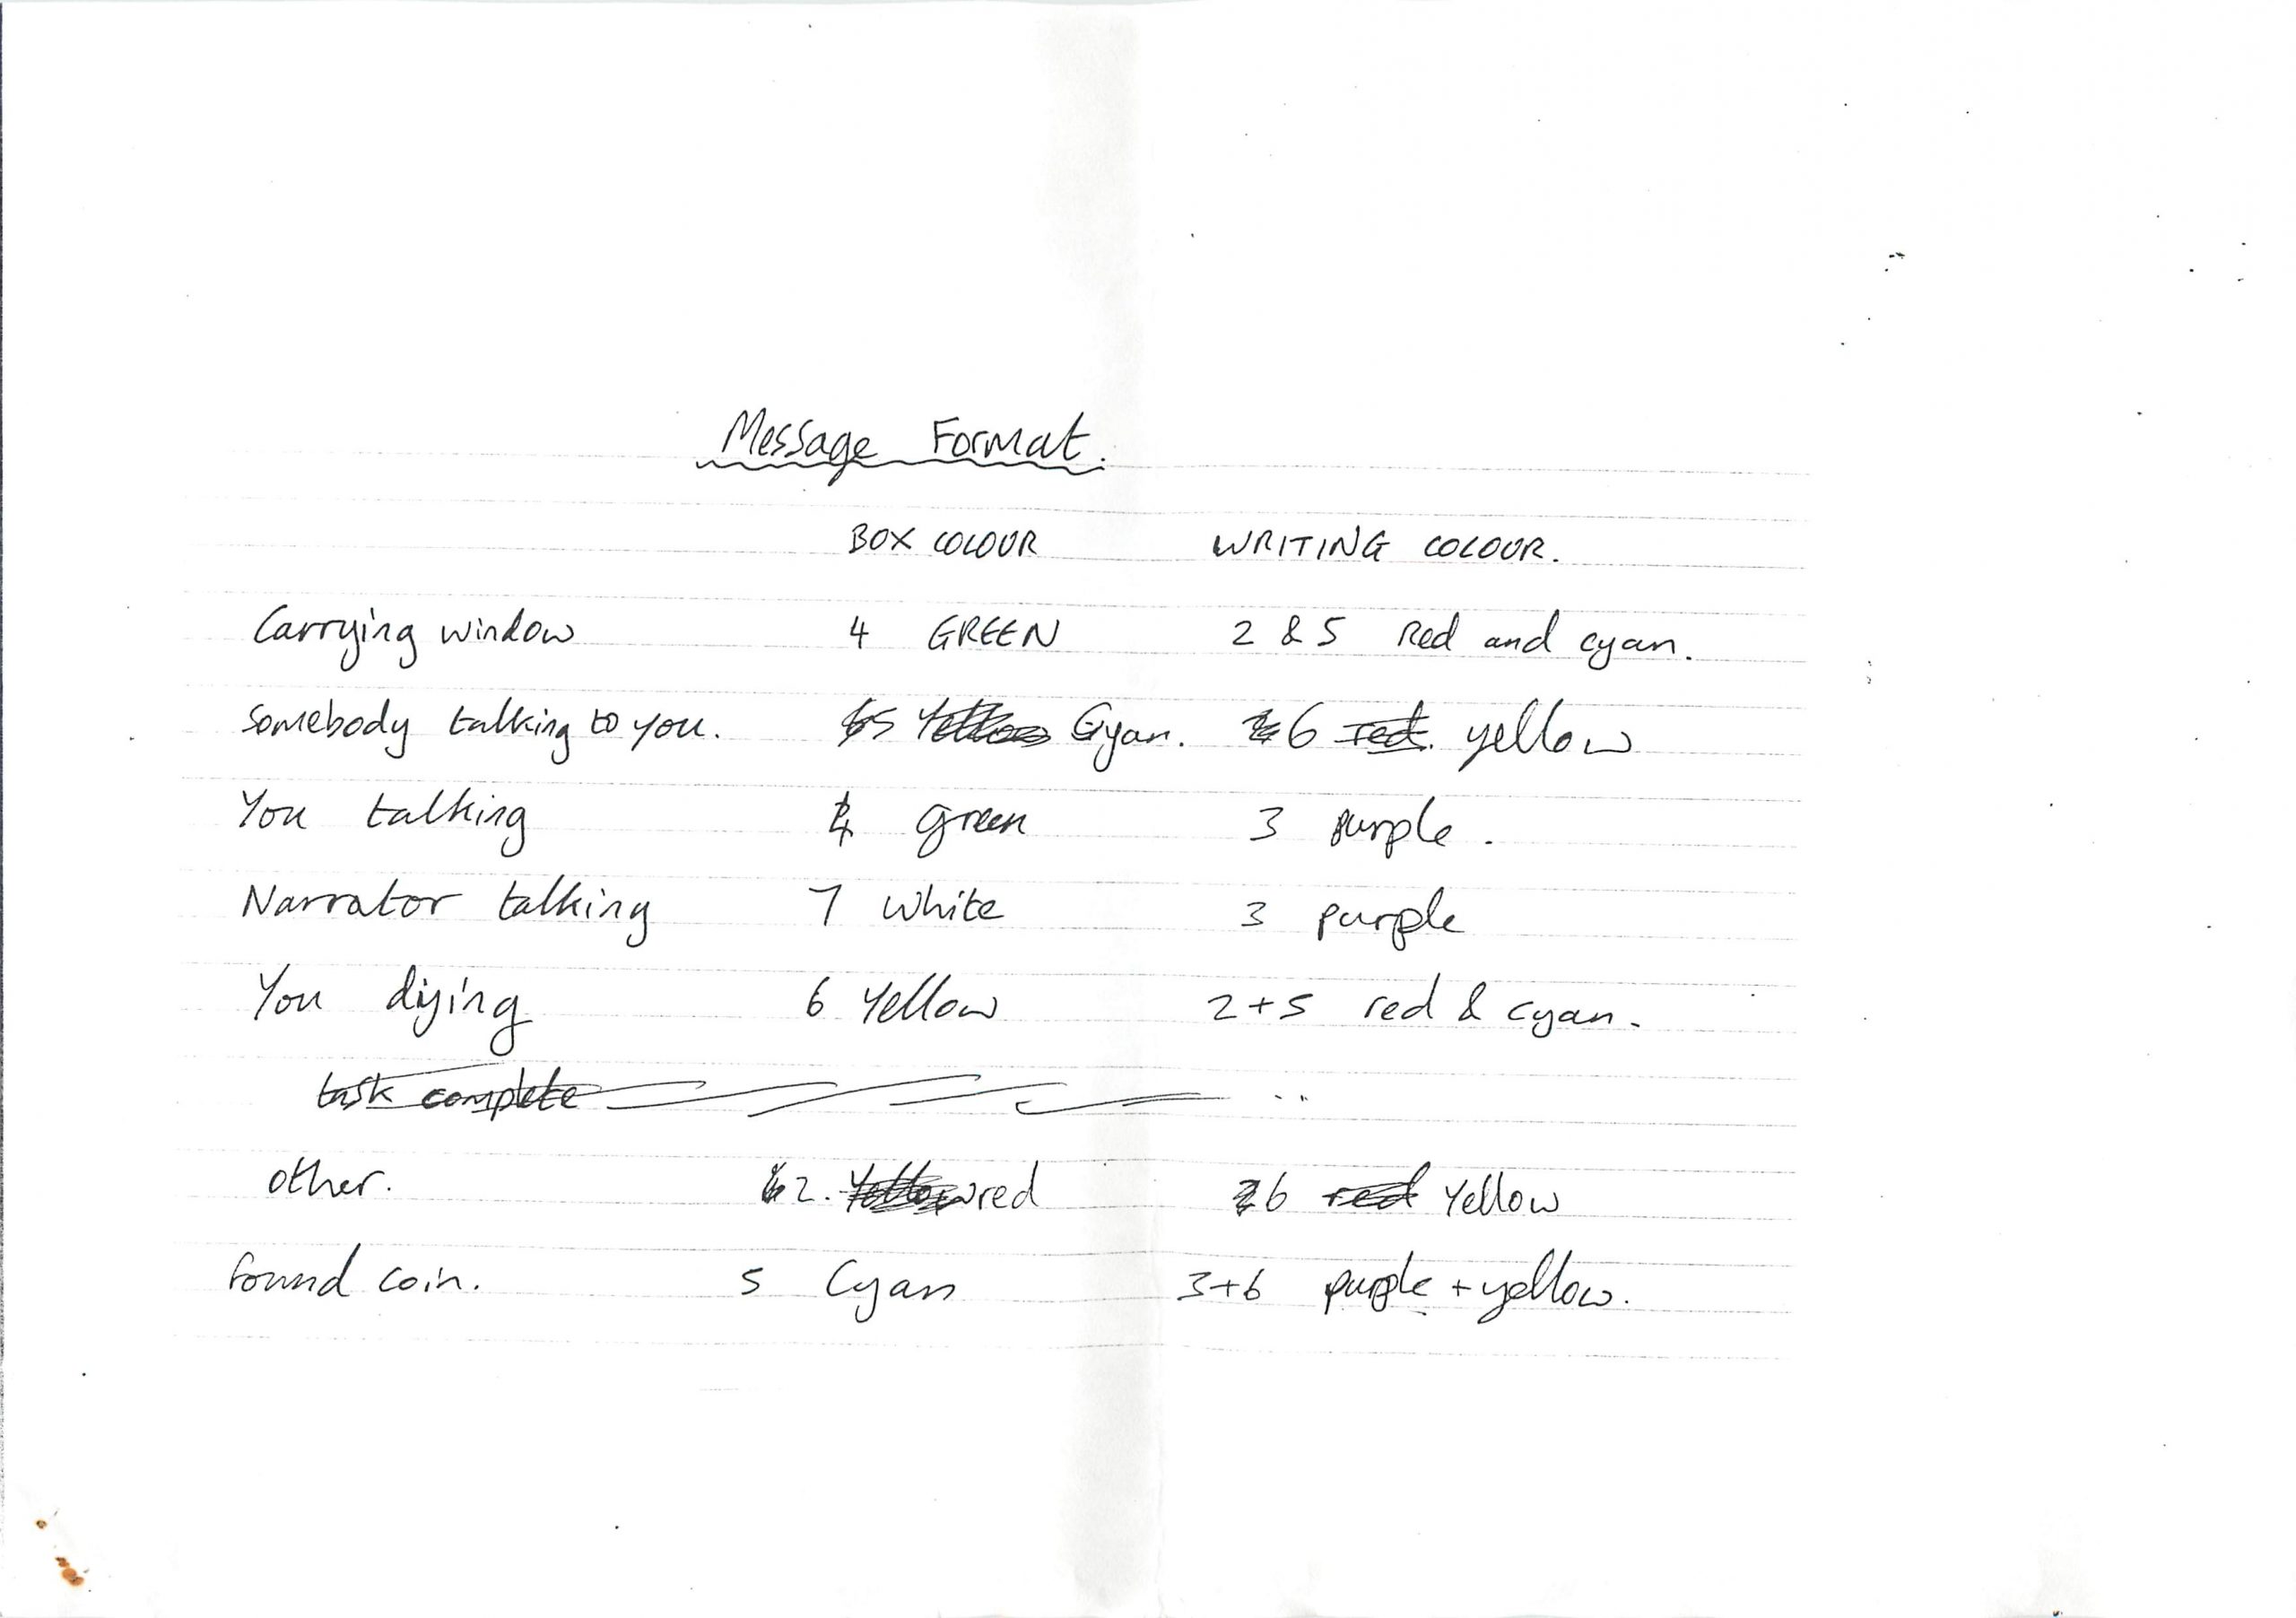 Message Format.
BOX COLOUR WRITING COLOUR.
Carrying window 4 GREEN 2 & 5 Red and cyan.
Somebody talking to you. 5 Yellow Cyan. 6 red. yellow
You talking 4 green 3 purple.
Narrator talking 7 white 3 purple
You diying 6 Yellow 2+5 red & cyan.
task complete
other. 2. Yellow red 6 red Yellow
found coin. 5 Cyan 3+6 purple + yellow.